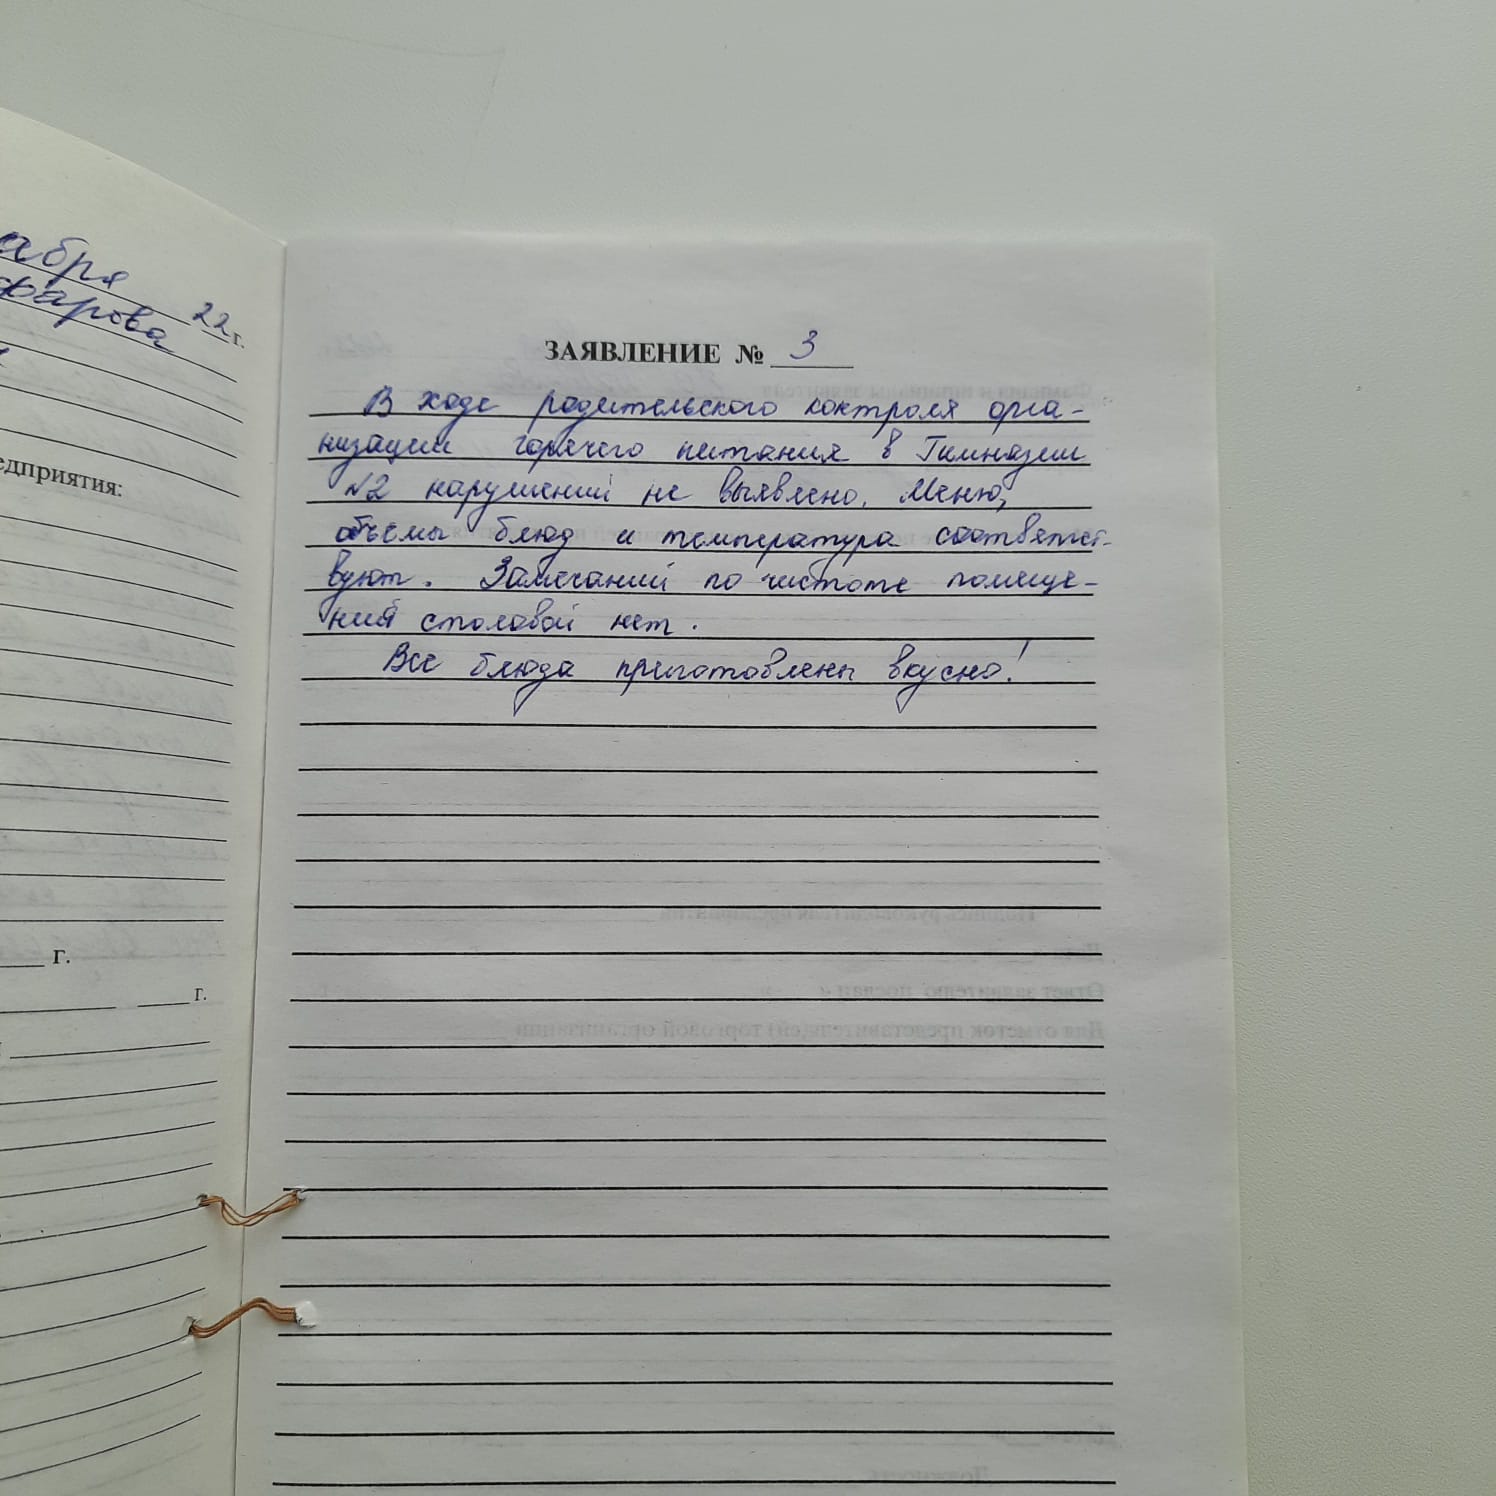 абря
22 г.
фарова
едприятия:
г.
г.
ЗАЯВЛЕНИЕ № 3
В ходе родительского контроля орга-
низации горячего питания в Гимназии
№2 нарушений не выявлено. Меню,
объемы блюд и температура соответст-
вуют. Замечаний по чистоте помеще-
ний столовой нет.
Все блюда приготовлены вкусно!